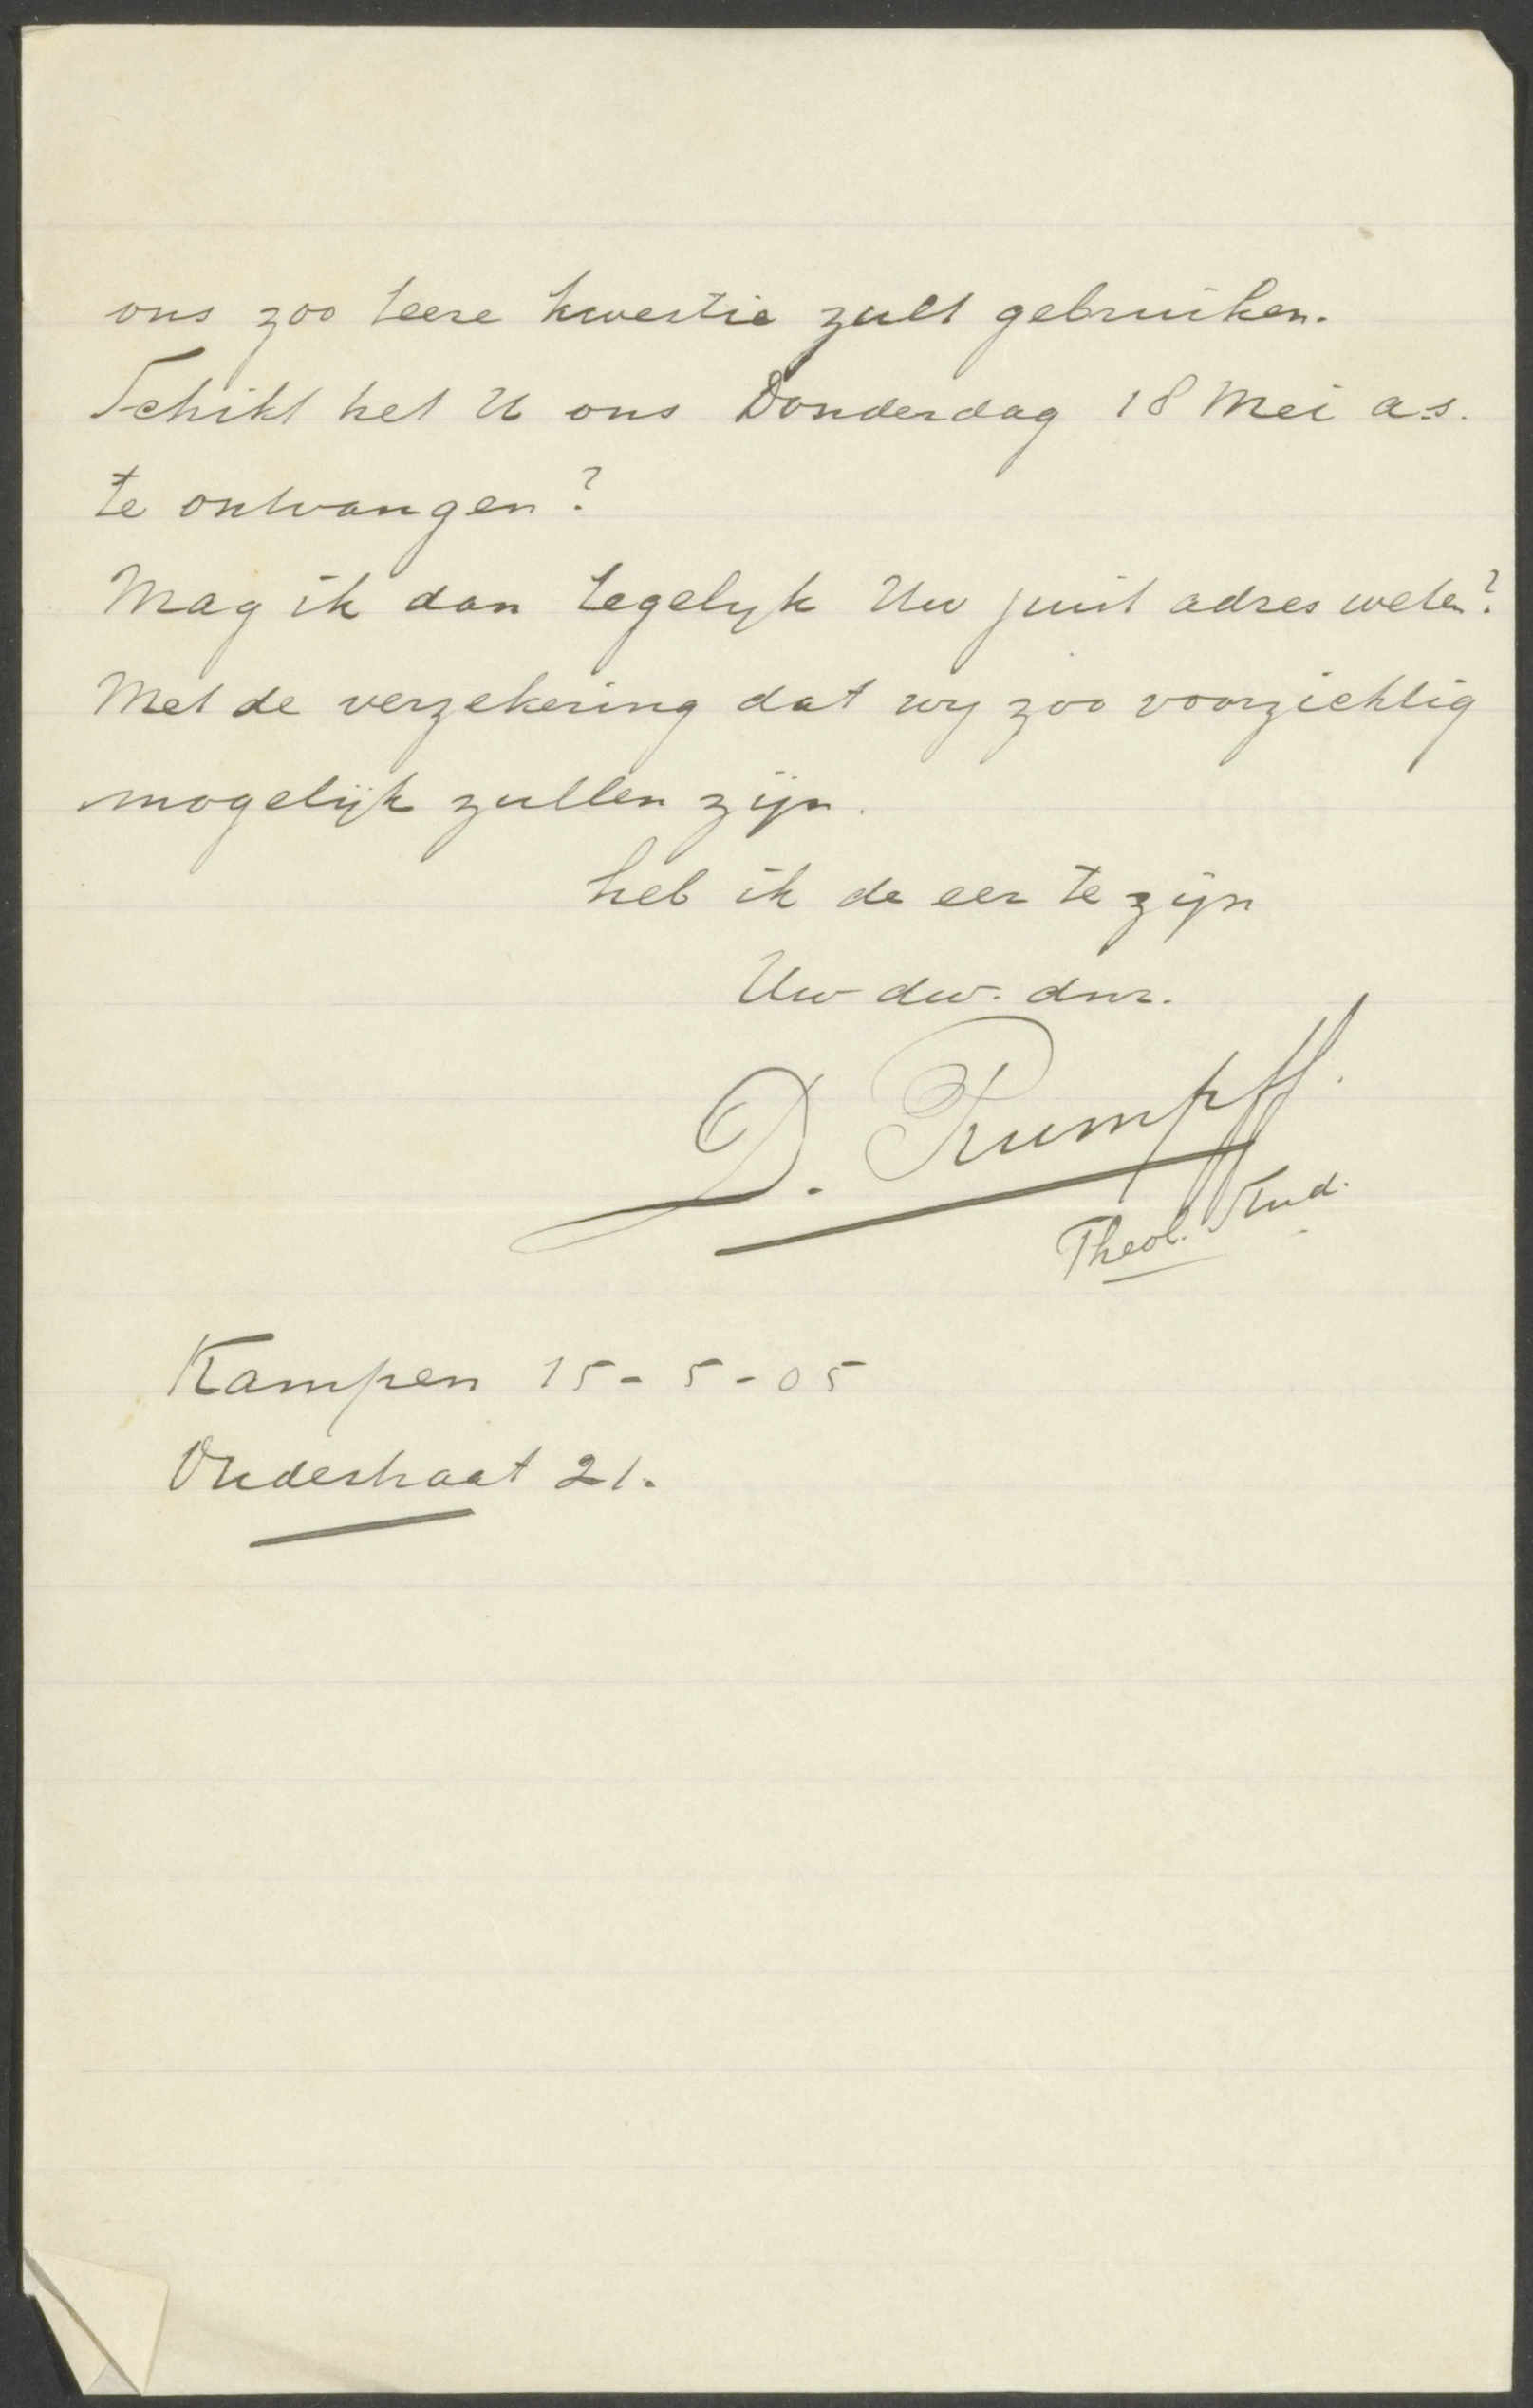 ons zoo teere kwestie zult gebruiken.
Schikt het U ons Donderdag 18 Mei a.s.
te ontvangen?
Mag ik dan tegelyk Uw juist adres weten?
Met de verzekering dat wy zoo voorzichtig
mogelijk zullen zijn.
heb ik de eer te zijn
Uw dw. dnr.
D. Rumpff.
Theol. Stud.
Kampen 15-5-05
Oudestraat 21.